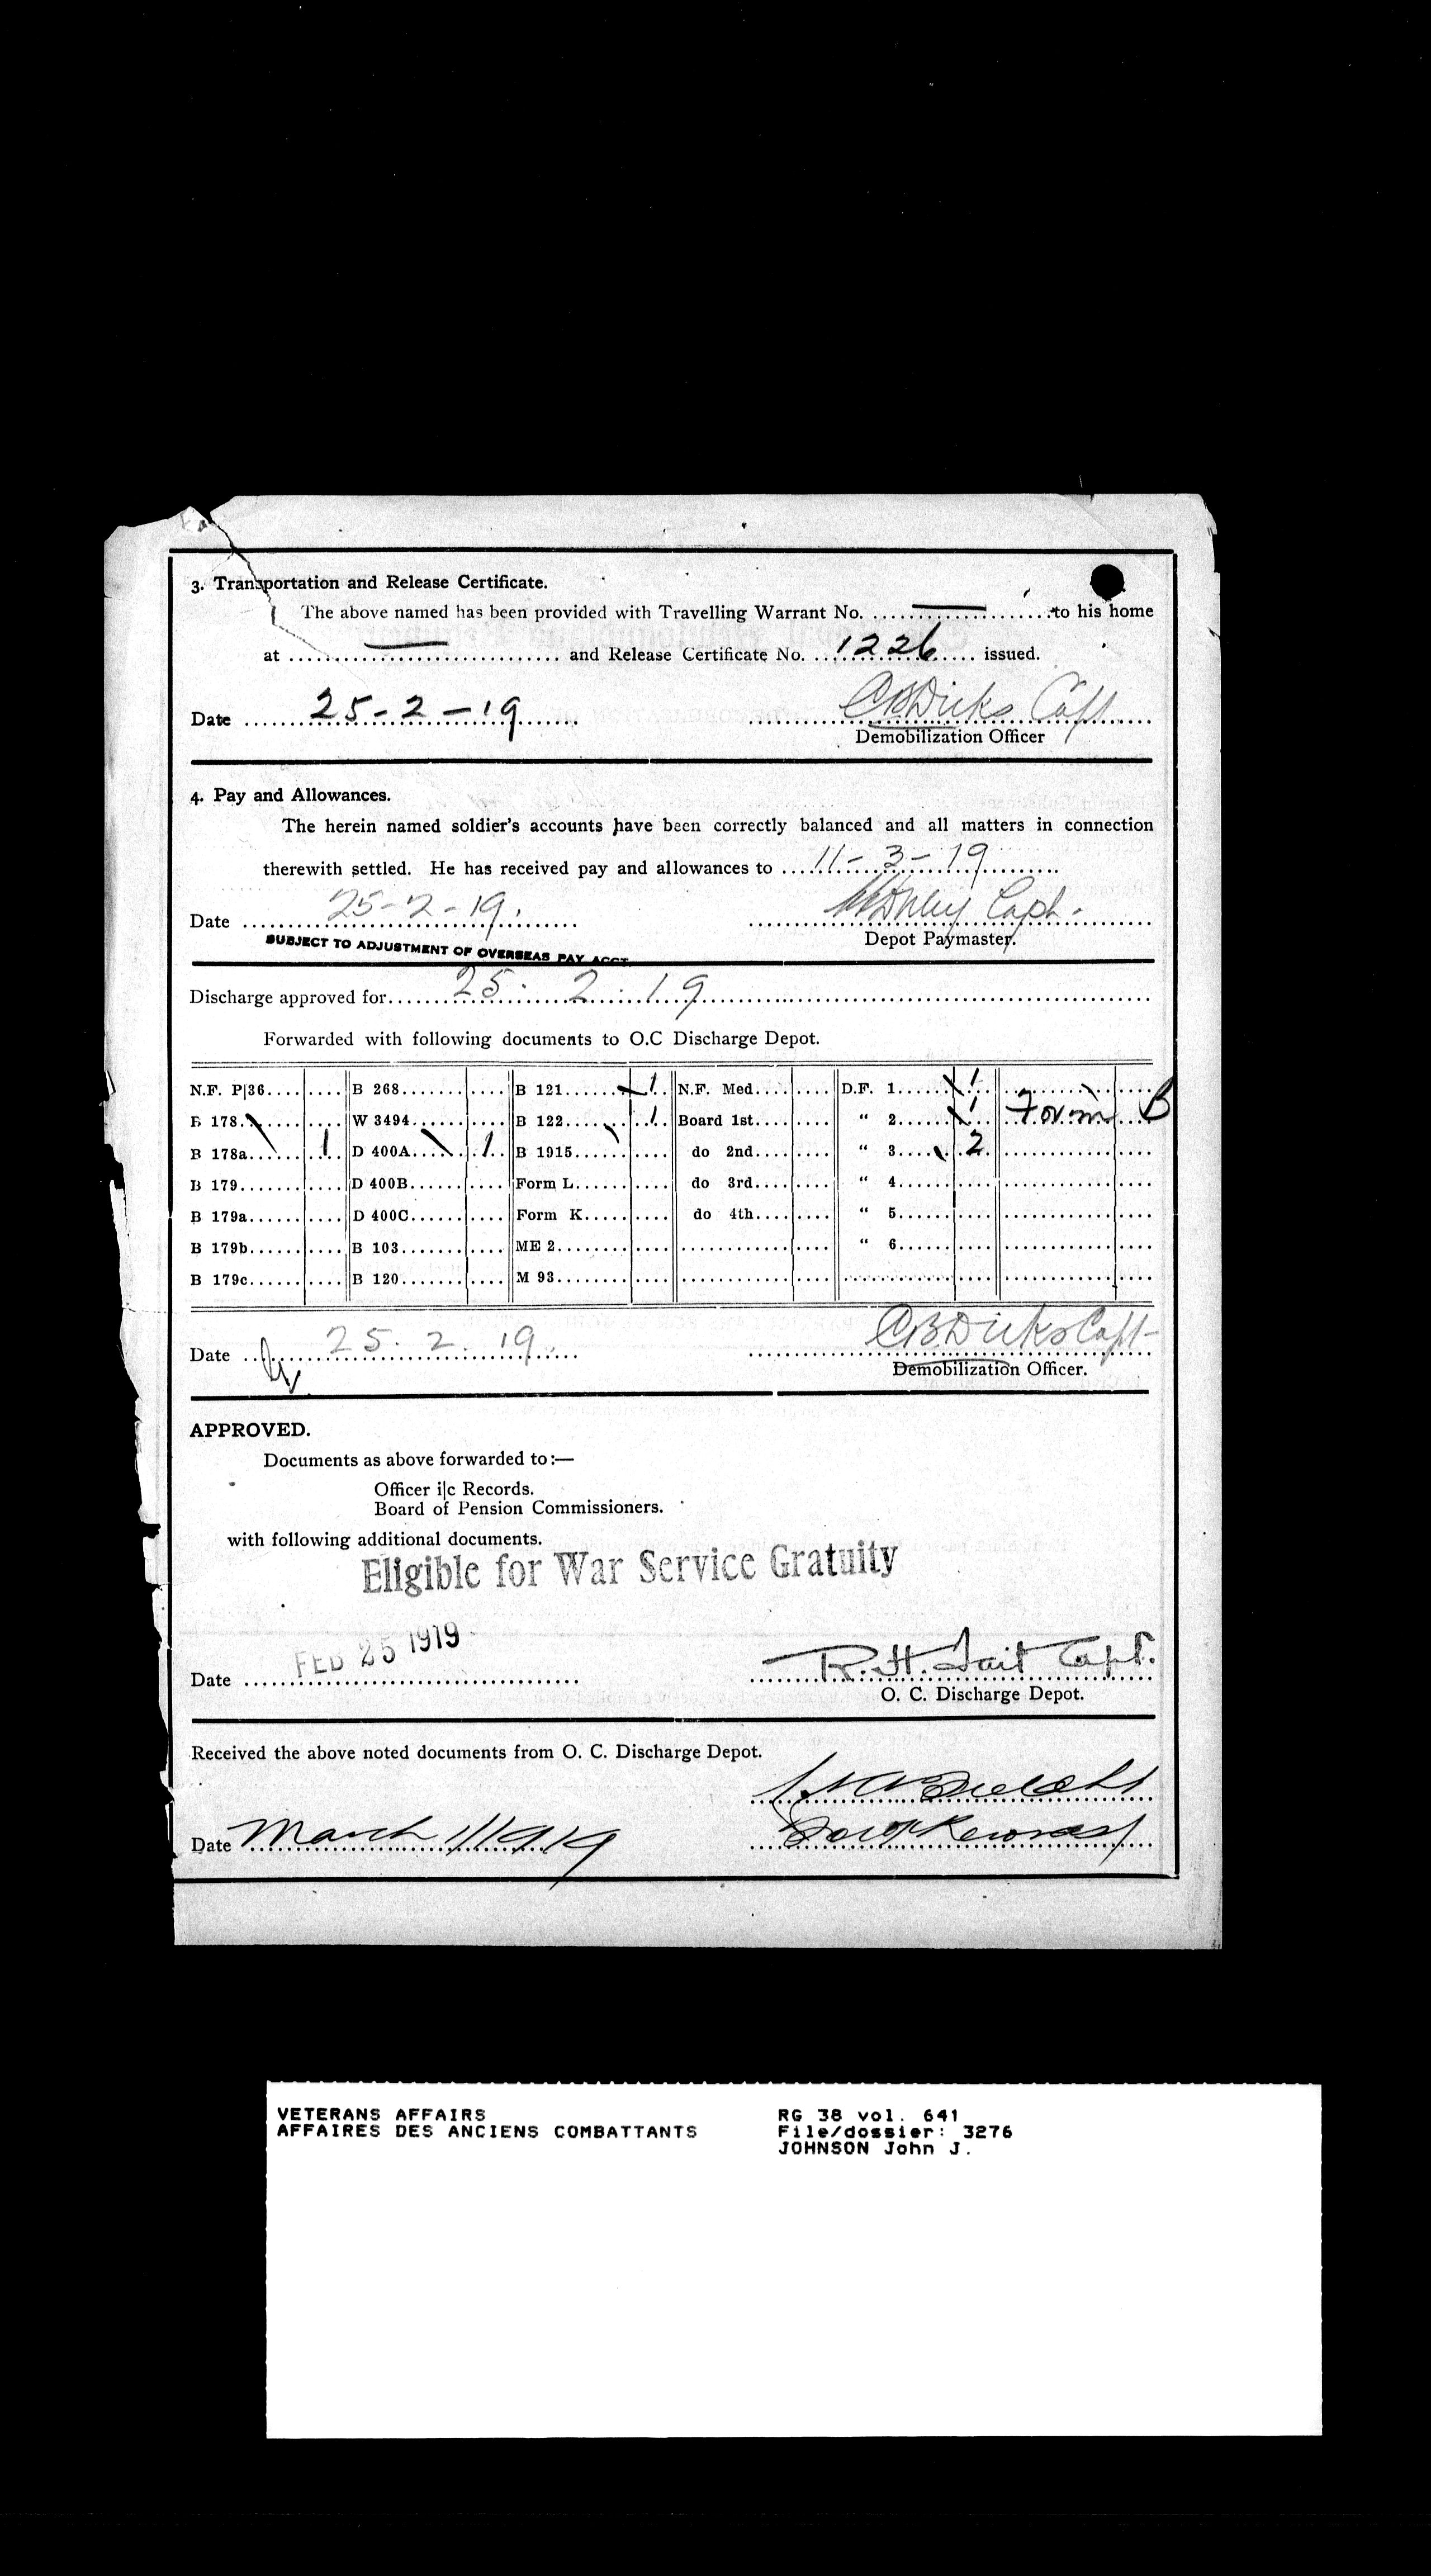 3. Transportation and Release Certificate.
The above named has been provided with Travelling Warrant No. .................... to his home
at .............................. and Release Certificate No. ...1226... issued.
Date ...25-2-19... CB Dicks Capt.
Demobilization Officer
4. Pay and Allowances.
The herein named soldier's accounts have been correctly balanced and all matters in connection
therewith settled. He has received pay and allowances to ...11-3-19...
Date ...25-2-19. Capt.
Depot Paymaster.
SUBJECT TO ADJUSTMENT OF OVERSEAS PAY ACCT.
Discharge approved for...25. 2. 19...
Forwarded with following documents to O.C Discharge Depot.
N.F. P|36.... B 268.... B 121.... 1 N.F. Med.... D.F. 1.... 1
B 178.... W 3494.... B 122.... 1 Board 1st.... " 2.... 1 Form B
B 178a.... 1 D 400A.... 1 B 1915.... do 2nd.... " 3.... 2
B 179.... D 400B.... Form L.... do 3rd.... " 4....
B 179a.... D 400C.... Form K.... do 4th.... " 5....
B 179b.... B 103.... ME 2.... " 6....
B 179c.... B 120.... M 93....
Date ...25. 2. 19. CB Dicks Capt
Demobilization Officer.
APPROVED.
Documents as above forwarded to:—
Officer i|c Records.
Board of Pension Commissioners.
with following additional documents.
Eligible for War Service Gratuity
FEB 25 1919
Date .................... R. H. Tait Capt.
O. C. Discharge Depot.
Received the above noted documents from O. C. Discharge Depot.
Date March 1/1919
VETERANS AFFAIRS
AFFAIRES DES ANCIENS COMBATTANTS
RG 38 vol. 641
File/dossier: 3276
JOHNSON John J.